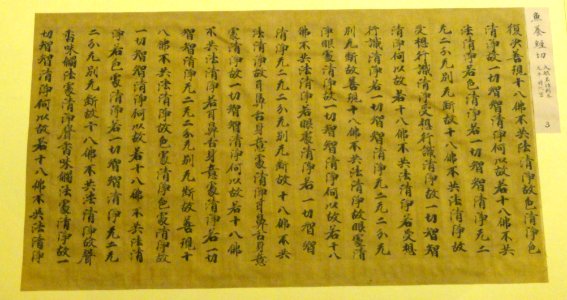 魚養経切
3
復次善現十八佛不共法清淨故色清淨色
清淨故一切智智清淨何以故若十八佛不共
法清淨若色清淨若一切智智清淨无二
无二分无別无斷故十八佛不共法清淨故
受想行識清淨受想行識清淨故一切智智
清淨何以故若十八佛不共法清淨若受想
行識清淨若一切智智清淨无二无二分无
別无斷故善現十八佛不共法清淨故眼處清
淨眼處清淨故一切智智清淨何以故若十八
佛不共法清淨若眼處清淨若一切智智
清淨无二无二分无別无斷故十八佛不共
法清淨故耳鼻舌身意處清淨耳鼻舌身意
處清淨故一切智智清淨何以故若十八佛
不共法清淨若耳鼻舌身意處清淨若一切
智智清淨无二无二分无別无斷故善現十
八佛不共法清淨故色處清淨色處清淨故
一切智智清淨何以故若十八佛不共法清
淨若色處清淨若一切智智清淨无二无
二分无別无斷故十八佛不共法清淨故聲
香味觸法處清淨聲香味觸法處清淨故一
切智智清淨何以故若十八佛不共法清淨